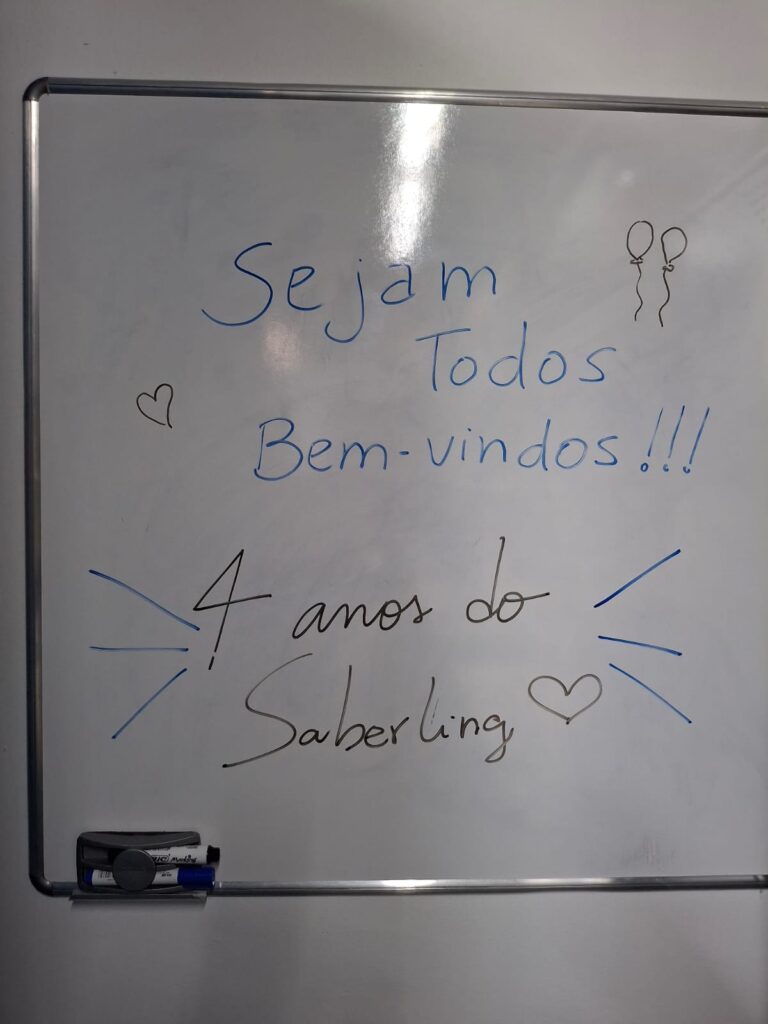 Sejam
Todos
Bem-vindos!!!
4 anos do
Saberling